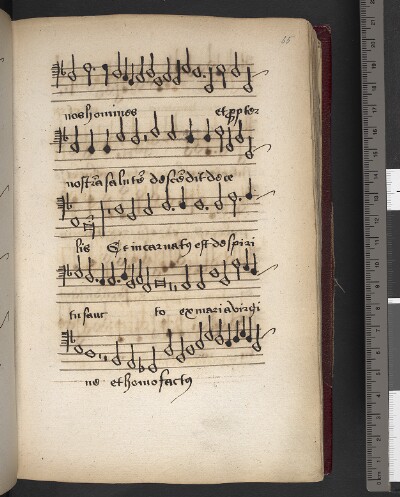 nos homines et ꝓpter
nostrā salutē descēdit de ce
lis Et incarnatꝯ est de spiri
tu sanc to ex maria virgi
ne et homo factꝯ